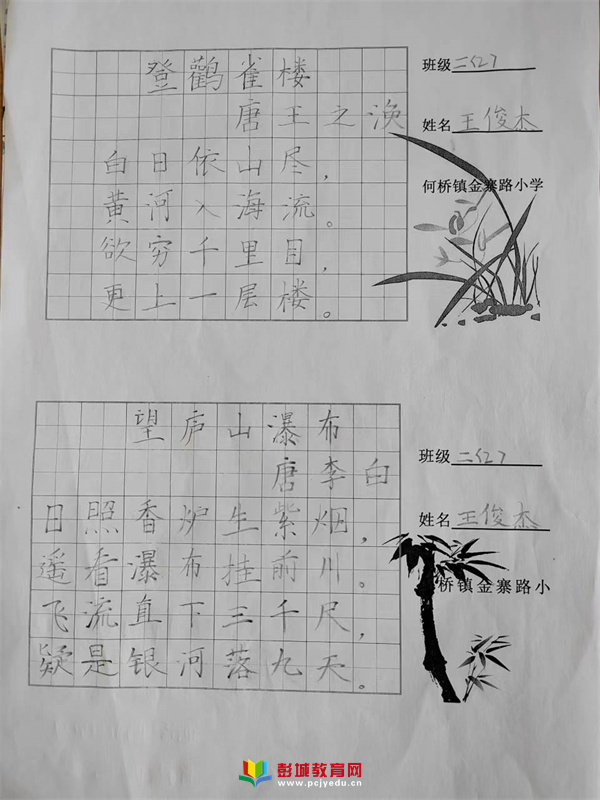 登鹳雀楼
唐王之涣
白日依山尽，
黄河入海流。
欲穷千里目，
更上一层楼。
班级 二〈2〉
姓名 王俊杰
何桥镇金寨路小学
望庐山瀑布
唐李白
日照香炉生紫烟，
遥看瀑布挂前川。
飞流直下三千尺，
疑是银河落九天。
班级 二〈2〉
姓名 王俊杰
桥镇金寨路小
彭城教育网
www.pcjyedu.cn